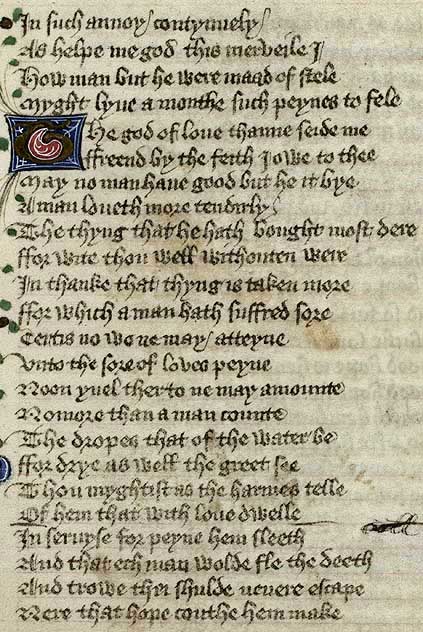 In such annoy / contynuely /
As helpe me god this merveile I
How man but he were maad of stele
Myght lyue a monthe such peynes to fele
The god of loue thanne seide me
ffreend by the feith I owe to thee
May no man haue good but he it bye
A man loueth more tendirly /
The thyng that he hath bought most dere
ffor wite thou well withouten were
In thanke that thyng is taken more
ffor which a man hath suffred sore
Certis no wo ne may / atteyne
Vnto the sore of loves peyne
Noon yuel therto ne may amounte
Nomore than a man counte
The dropes that of the water be
ffor drye as well the greet see
Thou myghtist as the harmes telle
Of hem that with loue dwelle
In seruyse for peyne hem sleeth
And that ech man wolde fle the deeth
And trowe thei shulde neuere escape
Nere that hope couthe hem make